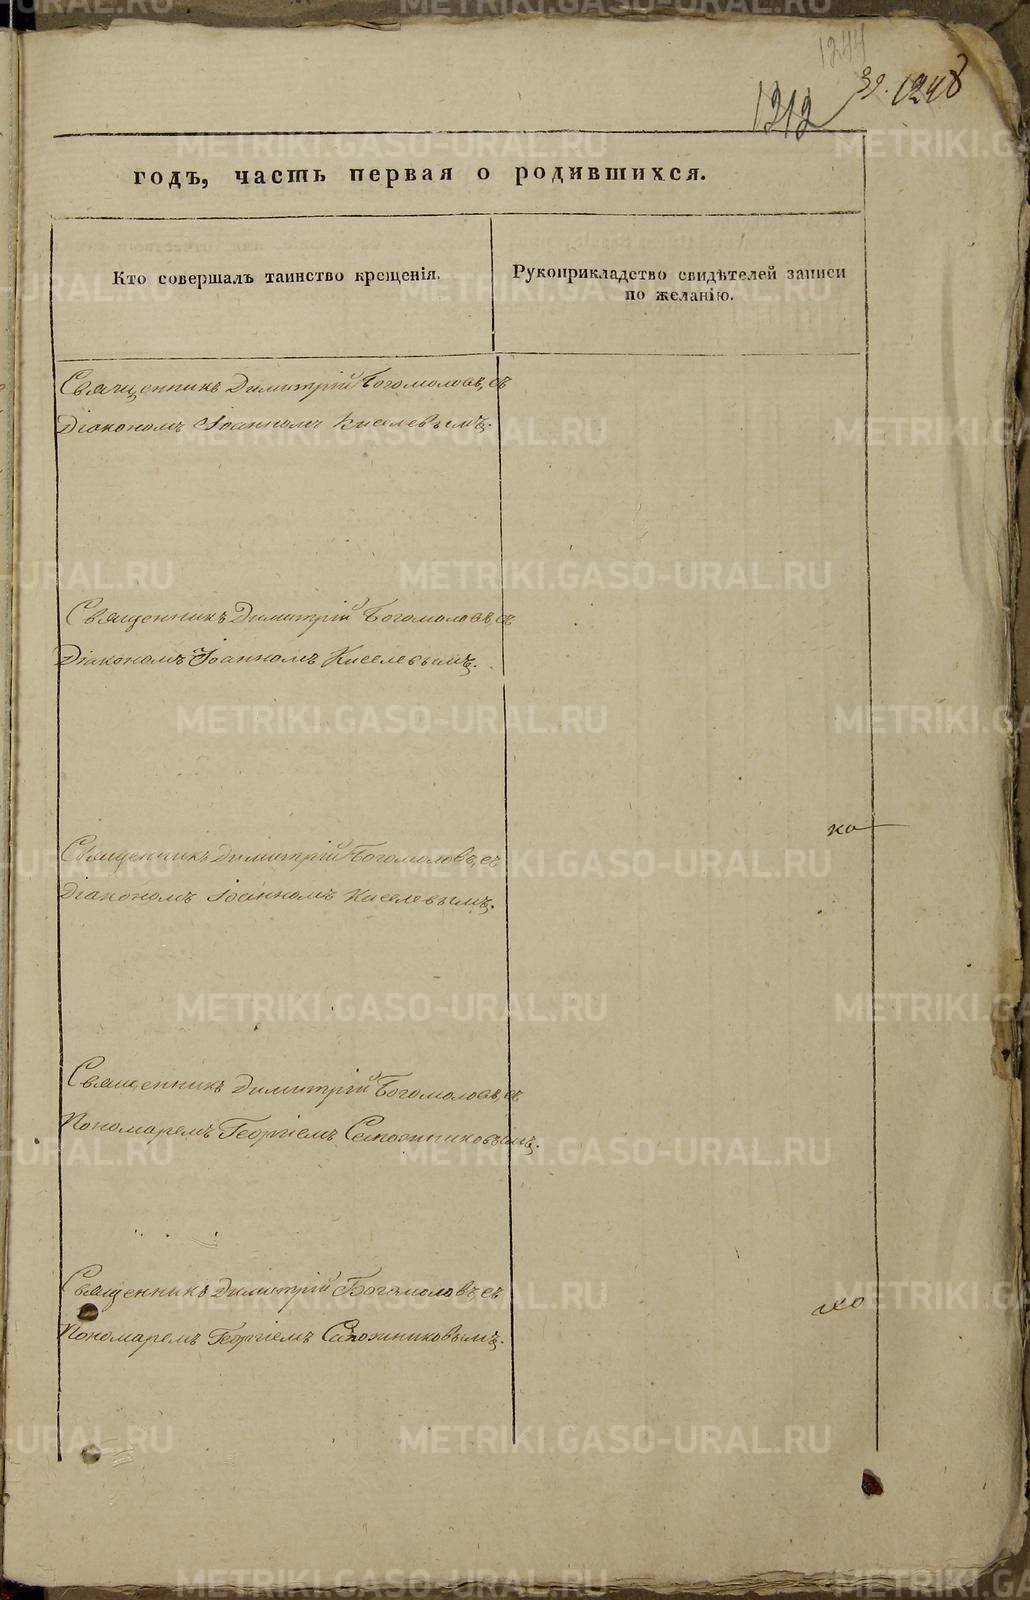 1244
1212 39. 1248
годъ, часть первая о родившихся.
Кто совершалъ таинство крещенія.
Рукоприкладство свидѣтелей записи
по желанію.
Священникъ Димитрій Богомоловъ, съ
Діакономъ Іоанномъ Киселевымъ.
Священникъ Димитрій Богомоловъ съ
Діакономъ Іоанномъ Киселевымъ.
Священникъ Димитрій Богомоловъ, съ
Діакономъ Іоанномъ Киселевымъ.
Священникъ Димитрій Богомоловъ, съ
Пономаремъ Георгіемъ Сапожниковымъ.
Священникъ Димитрій Богомоловъ съ
Пономаремъ Георгіемъ Сапожниковымъ.
METRIKI.GASO-URAL.RU